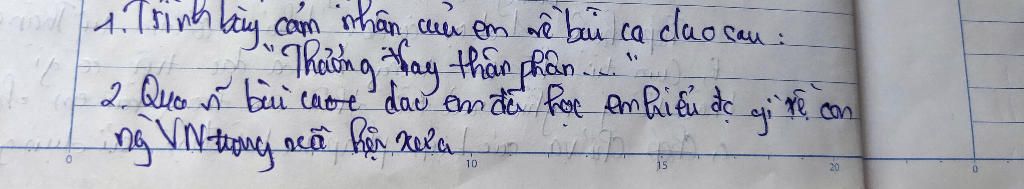 1. Trình bày cảm nhận của em về bài ca dao sau:
"Thương thay thân phận..."
2. Qua n~ bài ca dao em đã học em hiểu đc gì về con
ng VN trong xã hội xưa
0 10 15 20 0